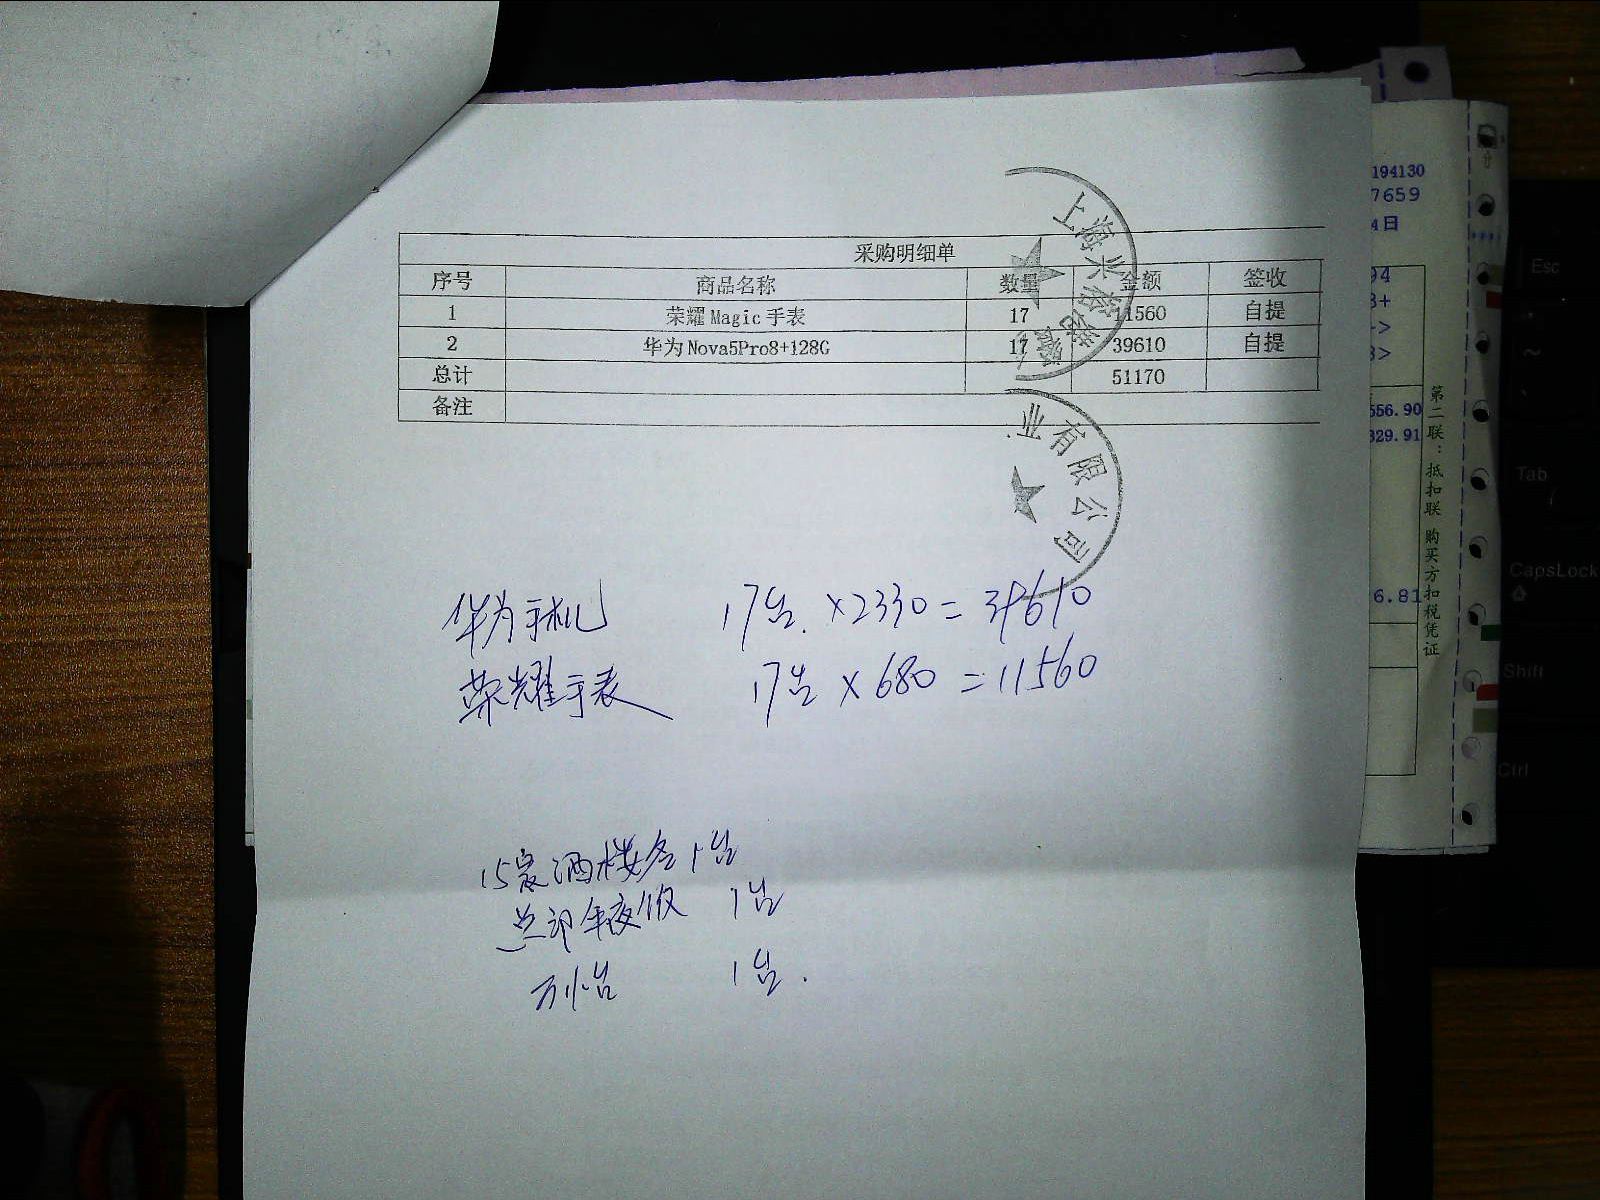 采购明细单
序号 商品名称 数量 金额 签收
1 荣耀 Magic 手表 17 11560 自提
2 华为 Nova5Pro8+128G 17 39610 自提
总计 51170
备注
上海兴裕
业有限公司
华为手机 17台. ×2330=39610
荣耀手表 17台 ×680 =11560
15家酒楼各1台
总部年夜饭 1台
万怡 1台.
194130
7659
4日
94
8+
->
3>
556.90
329.91
6.81
第二联:抵扣联 购买方扣税凭证
Esc
~
Tab
CapsLock
Shift
Ctrl